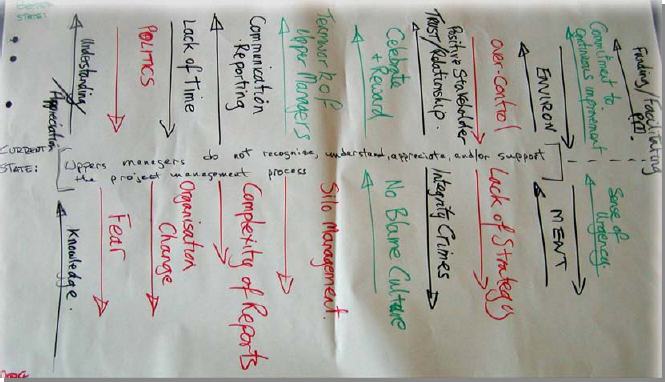 STATE:
Understanding/
Appreciation
POLITICS
Lack of Time
Communication
Reporting
Teamwork of
Upper Managers
Celebrate
+ Reward
Positive Stakeholder
TRUST/Relationship.
over-control
ENVIRON
Commitment to
continuous improvement
Funding/Facilitating
CURRENT
STATE:
Uppers managers do not recognise, understand, appreciate, and/or support
the project management process
Knowledge.
Fear
Organisation
Change
Complexity of Reports
Silo Management
No Blame Culture
Integrity Crimes
Lack of Strategy
MENT
Sense of
Urgency